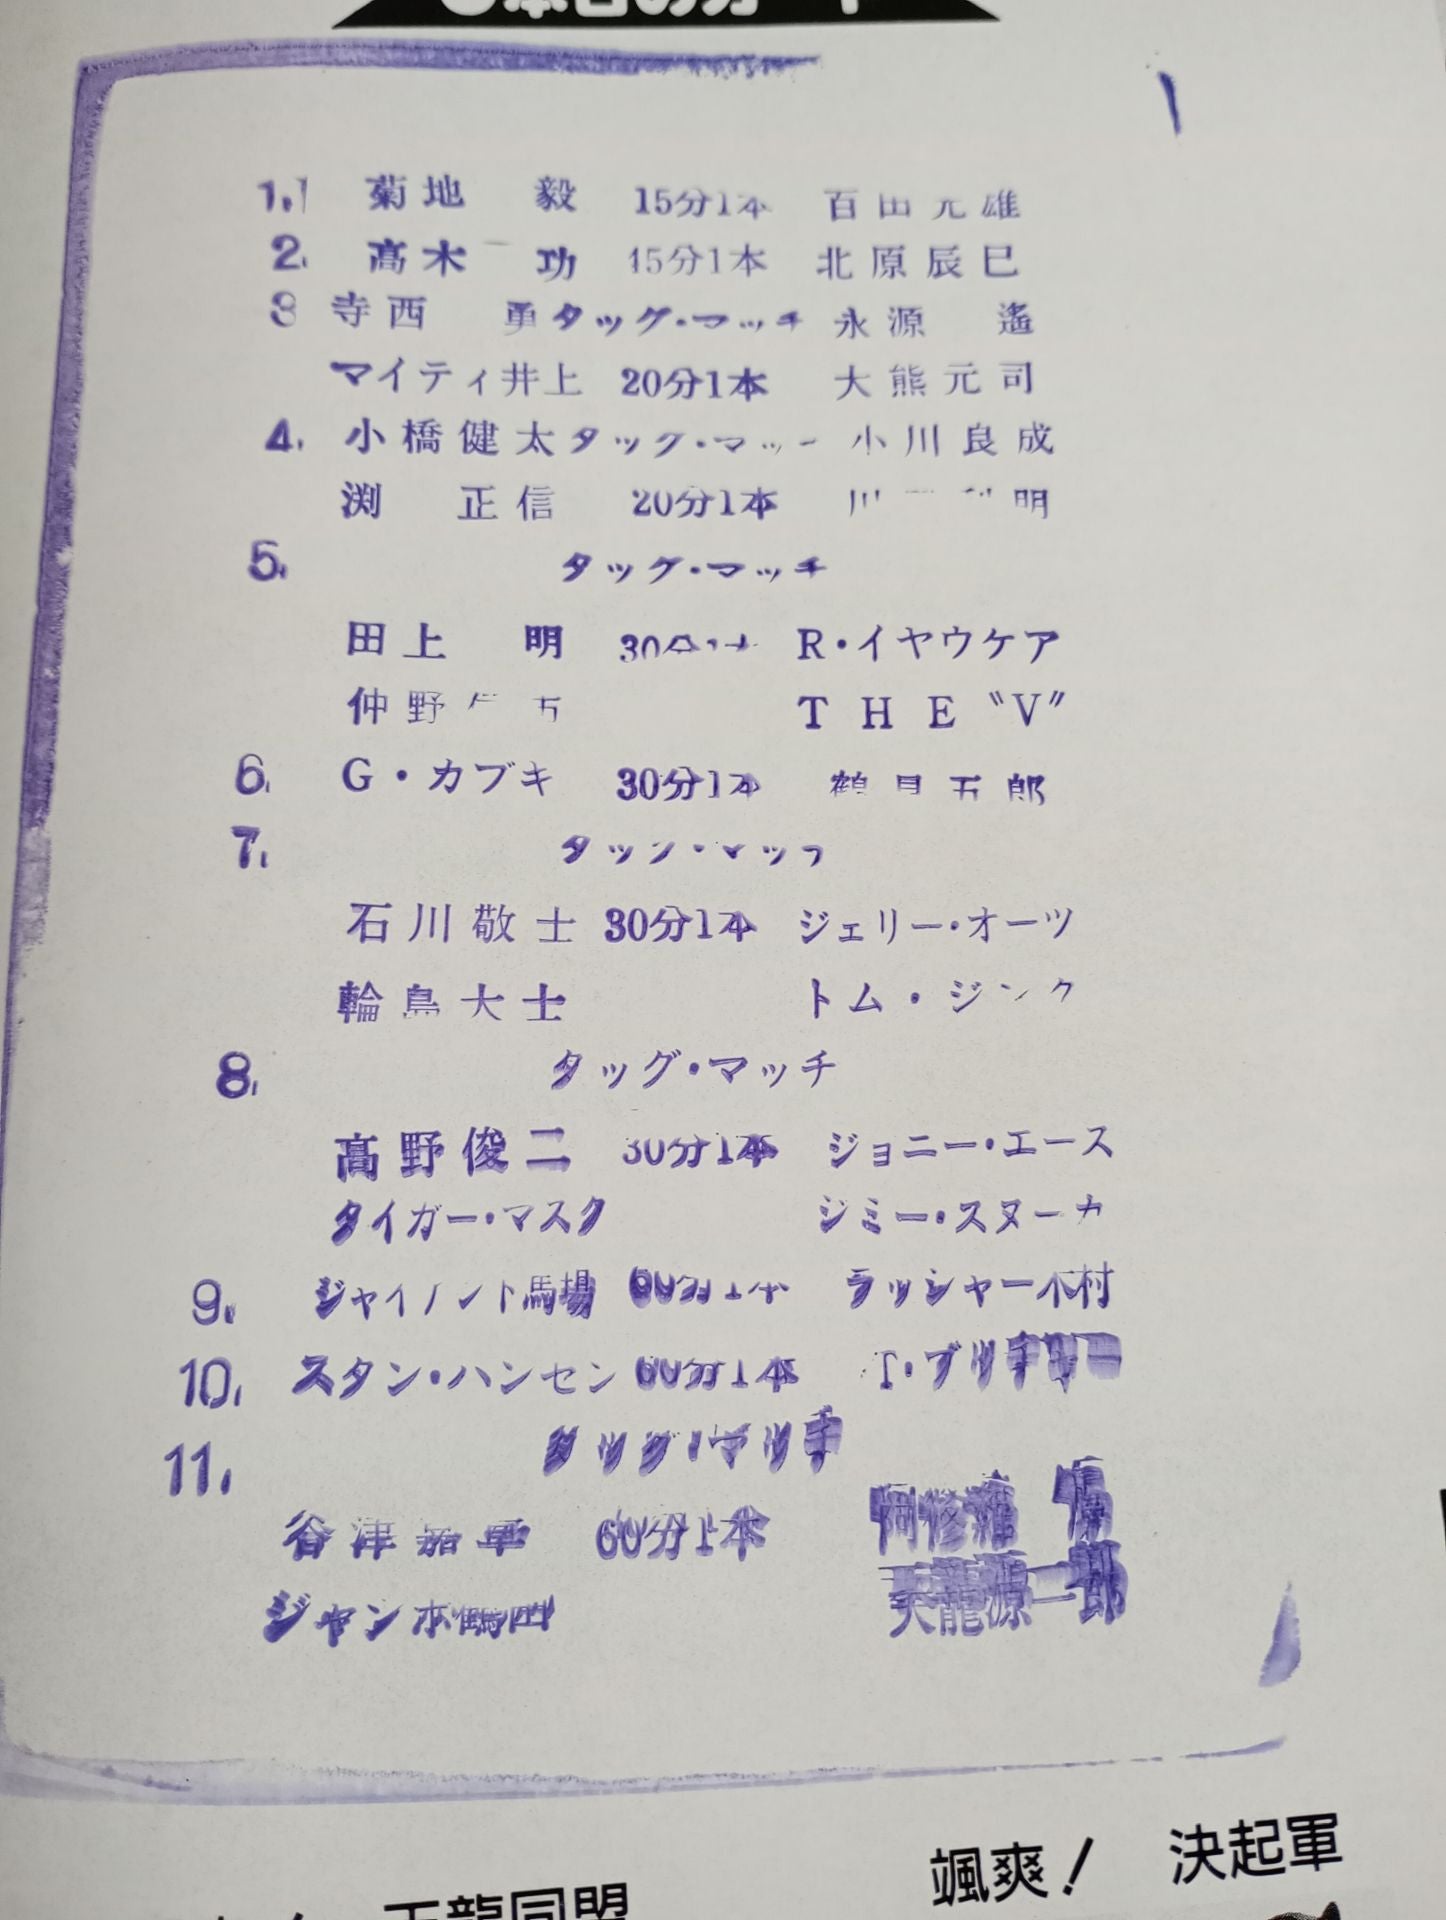 本日のカード
1. 菊地 毅 15分1本 百田光雄
2. 高木 功 45分1本 北原辰巳
3 寺西 勇 タッグ・マッチ 永源 遙
マイティ井上 20分1本 大熊元司
4. 小橋健太 タッグ・マッチ 小川良成
渕 正信 20分1本 川 明
5. タッグ・マッチ
田上 明 30分1本 R・イヤウケア
仲野 THE〝V〟
6. G・カブキ 30分1本 鶴見五郎
7. タッグ・マッチ
石川敬士 30分1本 ジェリー・オーツ
輪島大士 トム・ジンク
8. タッグ・マッチ
高野俊二 30分1本 ジョニー・エース
タイガー・マスク ジミー・スヌーカ
9. ジャイアント馬場 60分1本 ラッシャー木村
10. スタン・ハンセン 60分1本 T・ブッチャー
11. タッグ・マッチ
谷津嘉章 60分1本 阿修羅 原
ジャンボ鶴田 天龍源一郎
颯爽! 決起軍
天龍同盟